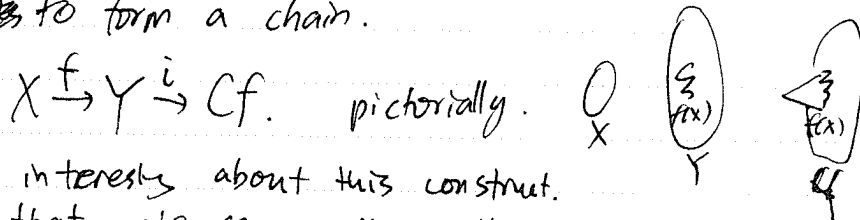 to form a chain.
X f→ Y i→ Cf. pictorially. X f(x) Y f(x) Cf
interests about this construct.